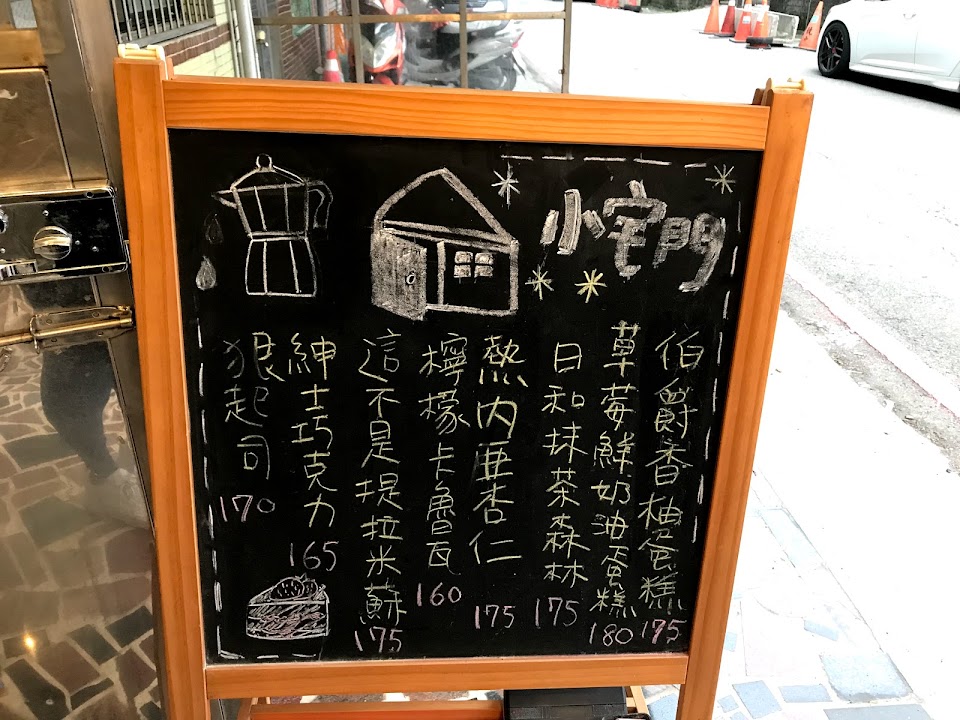 小宅門
伯爵香柚蛋糕 175
草莓鮮奶油蛋糕 180
日和抹茶森林 175
熱內亞杏仁 175
檸檬卡魯瓦 160
這不是提拉米蘇 175
紳士巧克力 165
狠起司 170